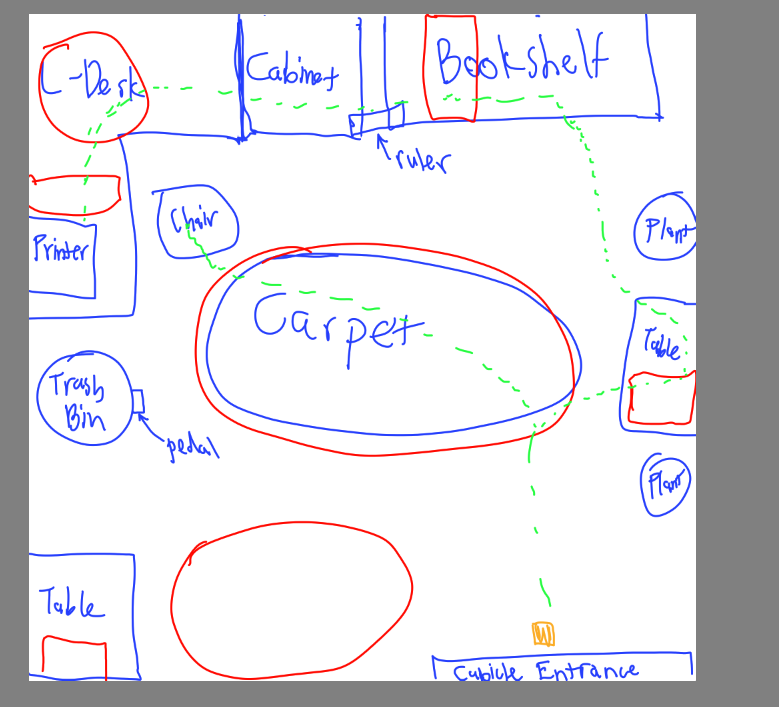 C-Desk
Cabinet
Bookshelf
ruler
Chair
Plant
Printer
Carpet
Table
Trash
Bin
pedal
Plant
Table
W
Cubicle Entrance